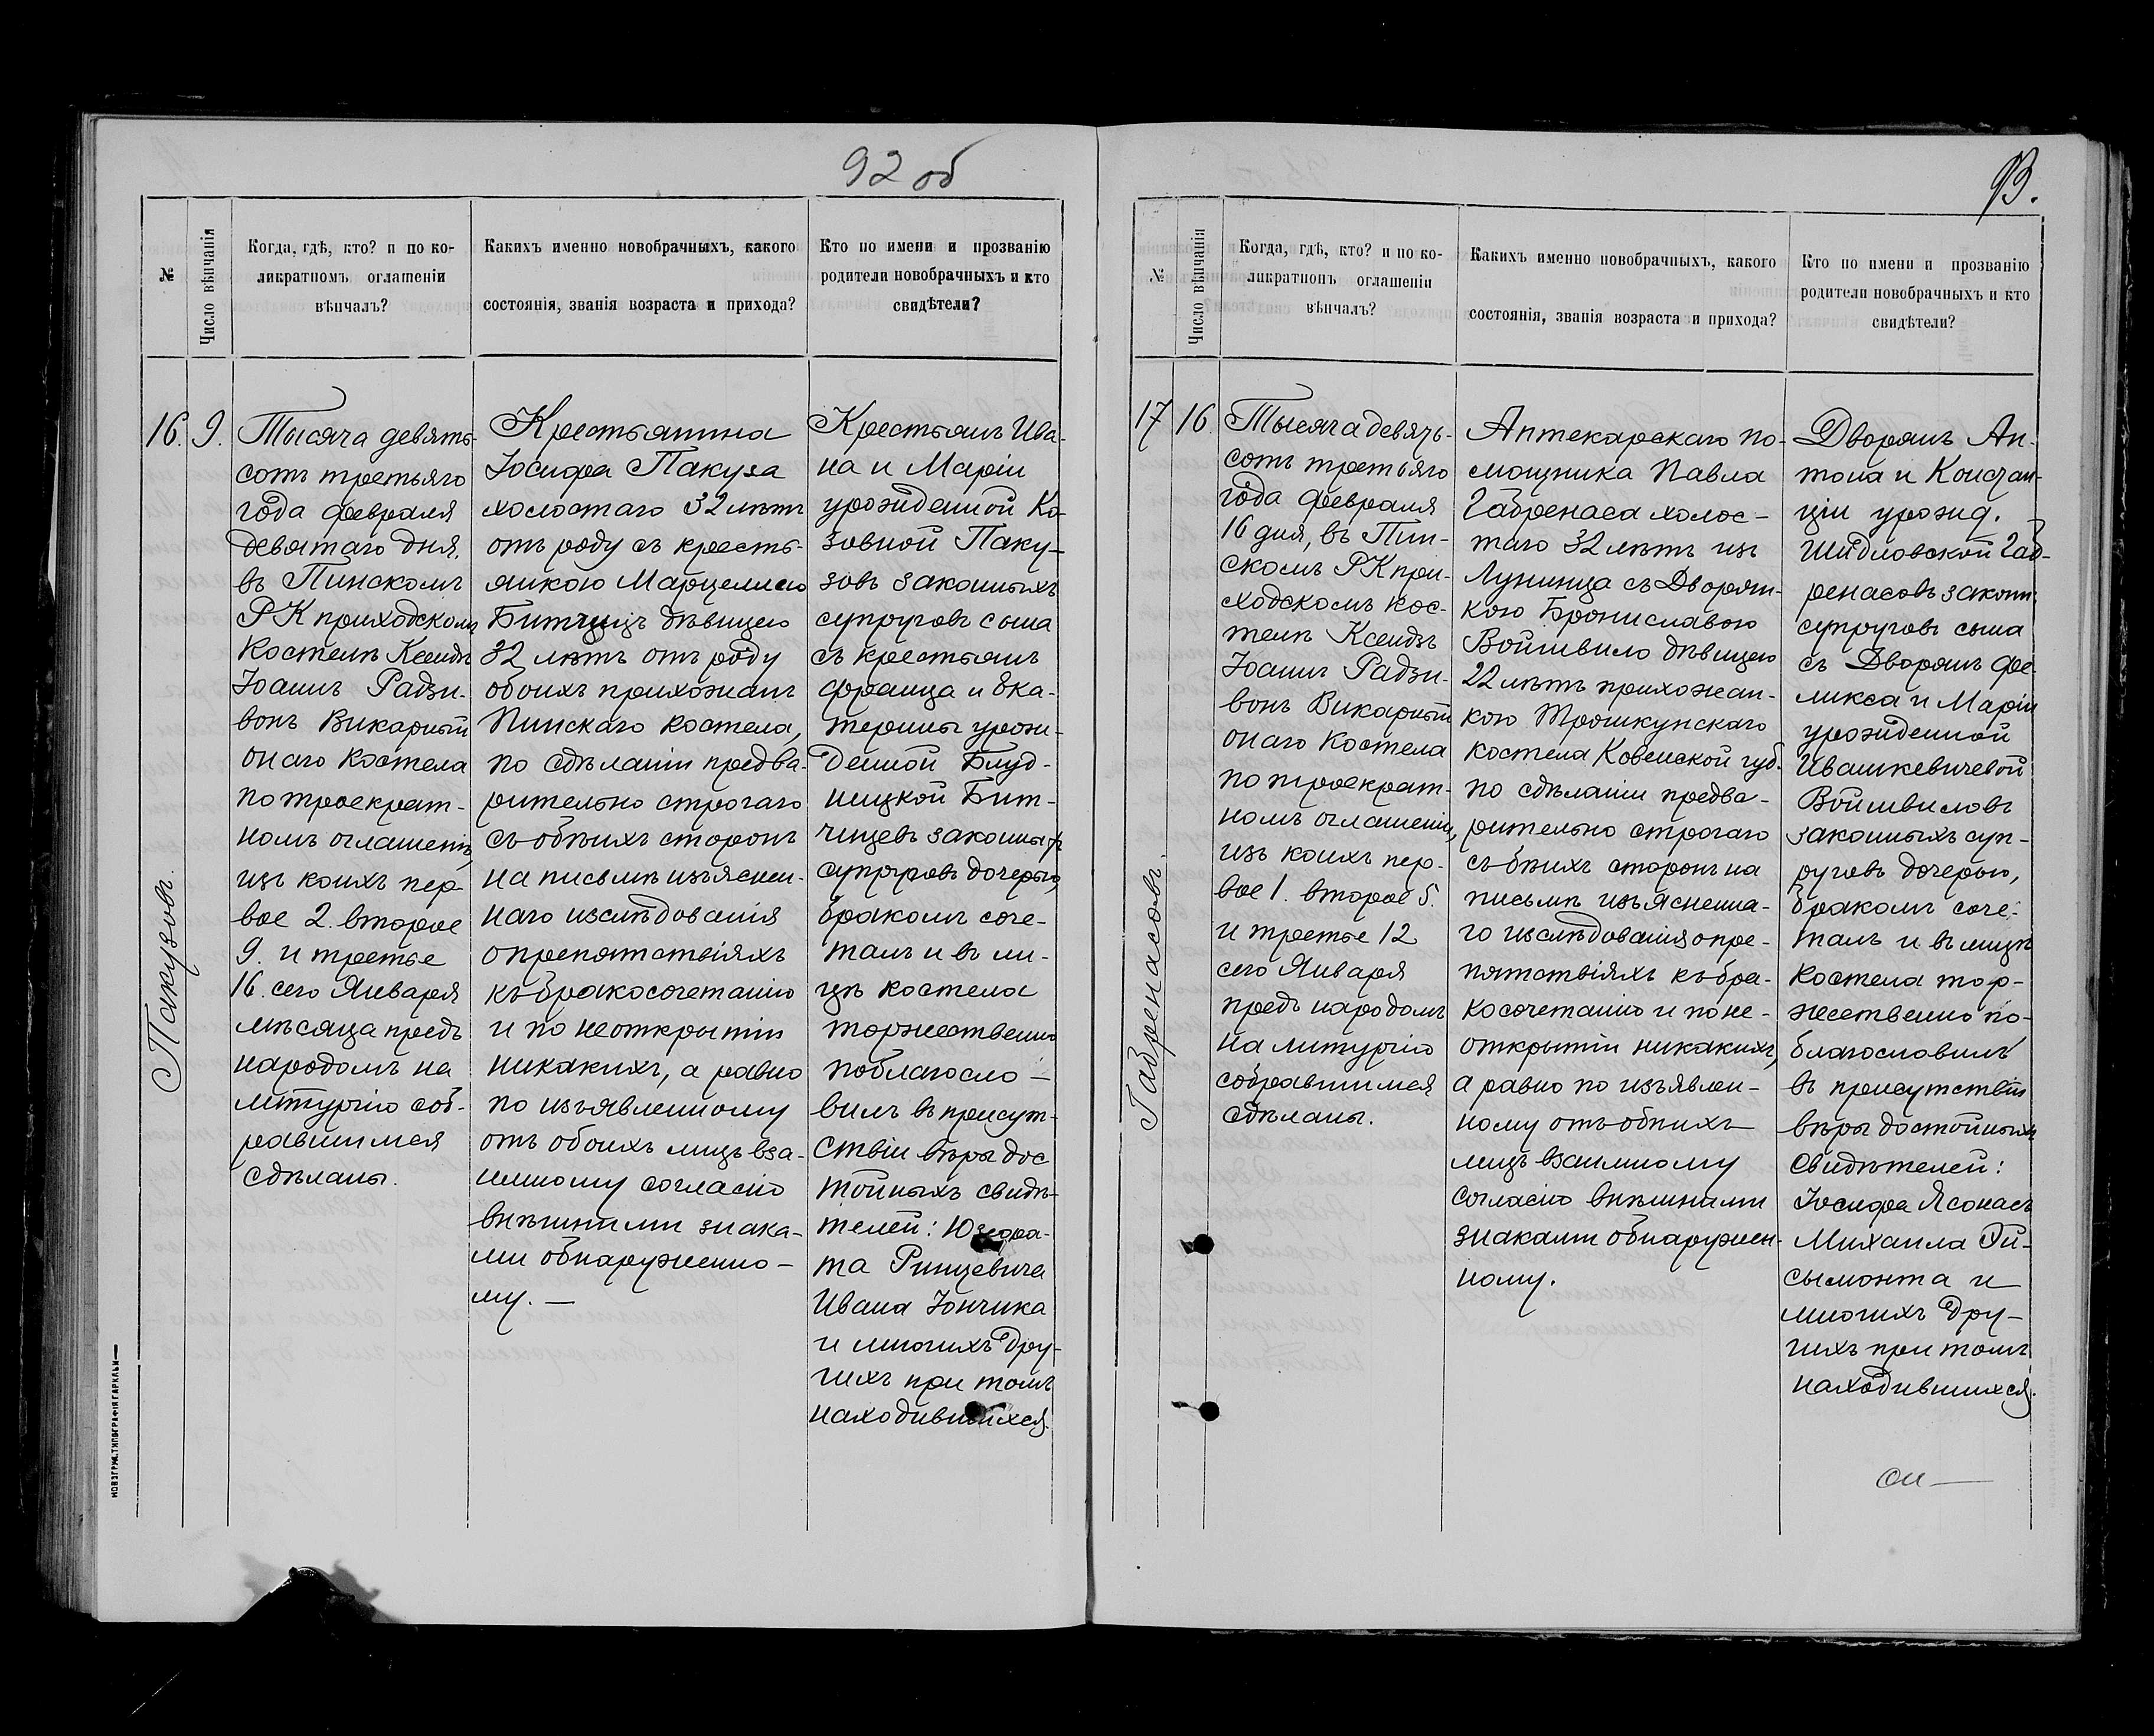 92 об
№
Число вѣнчанія
Когда, гдѣ, кто? и по ко-
ликратномъ оглашеніи
вѣнчалъ?
Какихъ именно новобрачныхъ, какого
состоянія, званія возраста и прихода?
Кто по имени и прозванію
родители новобрачныхъ и кто
свидѣтели?
16.
9.
Пакузовъ.
Тысяча девять-
сотъ третьяго
года февраля
девятаго дня,
въ Пинскомъ
РК приходскомъ
Костелѣ Ксендзъ
Іоаннъ Радзи-
вонъ Викарный
онаго Костела
по троекрат-
номъ оглашеніи,
изъ коихъ пер-
вое 2. второе
9. и третье
16. сего Января
мѣсяца предъ
народомъ на
литургію соб-
равшимся
сдѣланы.
Крестьянина
Іосифа Пакуза
холостаго 32 лѣтъ
отъ роду съ кресть-
янкою Марцелиею
Битчицъ дѣвицею
32 лѣтъ отъ роду
обоихъ прихожанъ
Пинскаго костела,
по сдѣланіи предва-
рительно строгаго
съ обѣихъ сторонъ
на письмѣ изъяснен-
наго изслѣдованія
о препятствіяхъ
къ бракосочетанію
и по неоткрытіи
никакихъ, а равно
по изъявленному
отъ обоихъ лицъ вза-
имному согласію
внѣшними знака-
ми обнаруженно-
му. —
Крестьянъ Ива-
на и Маріи
урожденной Ко-
зовной Паку-
зовъ законныхъ
супруговъ сына
съ крестьянъ
Франца и Ека-
терины урож-
денной Блуд-
ницкой Бит-
чицевъ законныхъ
супруговъ дочерью,
бракомъ соче-
талъ и въ ли-
цѣ костела
торжественно
поблагосло-
вилъ въ присут-
ствіи вѣры дос
тойныхъ свидѣ-
телей: Юзефа-
та Ринцевича
Ивана Іончика
и многихъ дру-
гихъ при томъ
находившихся.
НОВОГРУД. ТИПОГРАФІЯ ГАРКАВИ
93.
№
Число вѣнчанія
Когда, гдѣ, кто? и по ко-
ликратномъ оглашеніи
вѣнчалъ?
Какихъ именно новобрачныхъ, какого
состоянія, званія возраста и прихода?
Кто по имени и прозванію
родители новобрачныхъ и кто
свидѣтели?
17
16.
Габренасовъ.
Тысяча девять-
сотъ третьяго
года февраля
16 дня, въ Пин-
скомъ РК при-
ходскомъ кос-
телѣ Ксендзъ
Іоаннъ Радзи-
вонъ Викарный
онаго Костела
по троекрат-
номъ оглашеніи,
изъ коихъ пер-
вое 1. второе 5.
и третье 12
сего Января
предъ народомъ
на литургію
собравшимся
сдѣланы.
Аптекарскаго по-
мощника Павла
Габренаса холос-
таго 32 лѣтъ изъ
Лунинца съ Дворян-
кою Брониславою
Войшвило дѣвицею
22 лѣтъ прихожан-
кою Трошкунскаго
костела Ковенской губ.
по сдѣланіи предва-
рительно строгаго
съ обѣихъ сторонъ на
письмѣ изъясненна-
го изслѣдованія о пре-
пятствіяхъ къ бра-
косочетанію и по не-
открытіи никакихъ,
а равно по изъявлен-
ному отъ обѣихъ
лицъ взаимному
согласію внѣшними
знаками обнаружен-
ному.
Дворянъ Ан-
тона и Констан-
ціи урожд.
Шидловской Габ-
ренасовъ законн.
супруговъ сына
съ Дворянъ Фе-
ликса и Маріи
урожденной
Ивашкевичевой
Войшвиловъ
законныхъ суп-
руговъ дочерью,
бракомъ соче-
талъ и въ лицѣ
Костела тор-
жественно по-
благословилъ
въ присутствіи
вѣры достойныхъ
свидѣтелей:
Іосифа Ясонасъ
Михаила Ой-
сымонта и
многихъ дру-
гихъ при томъ
находившихся.